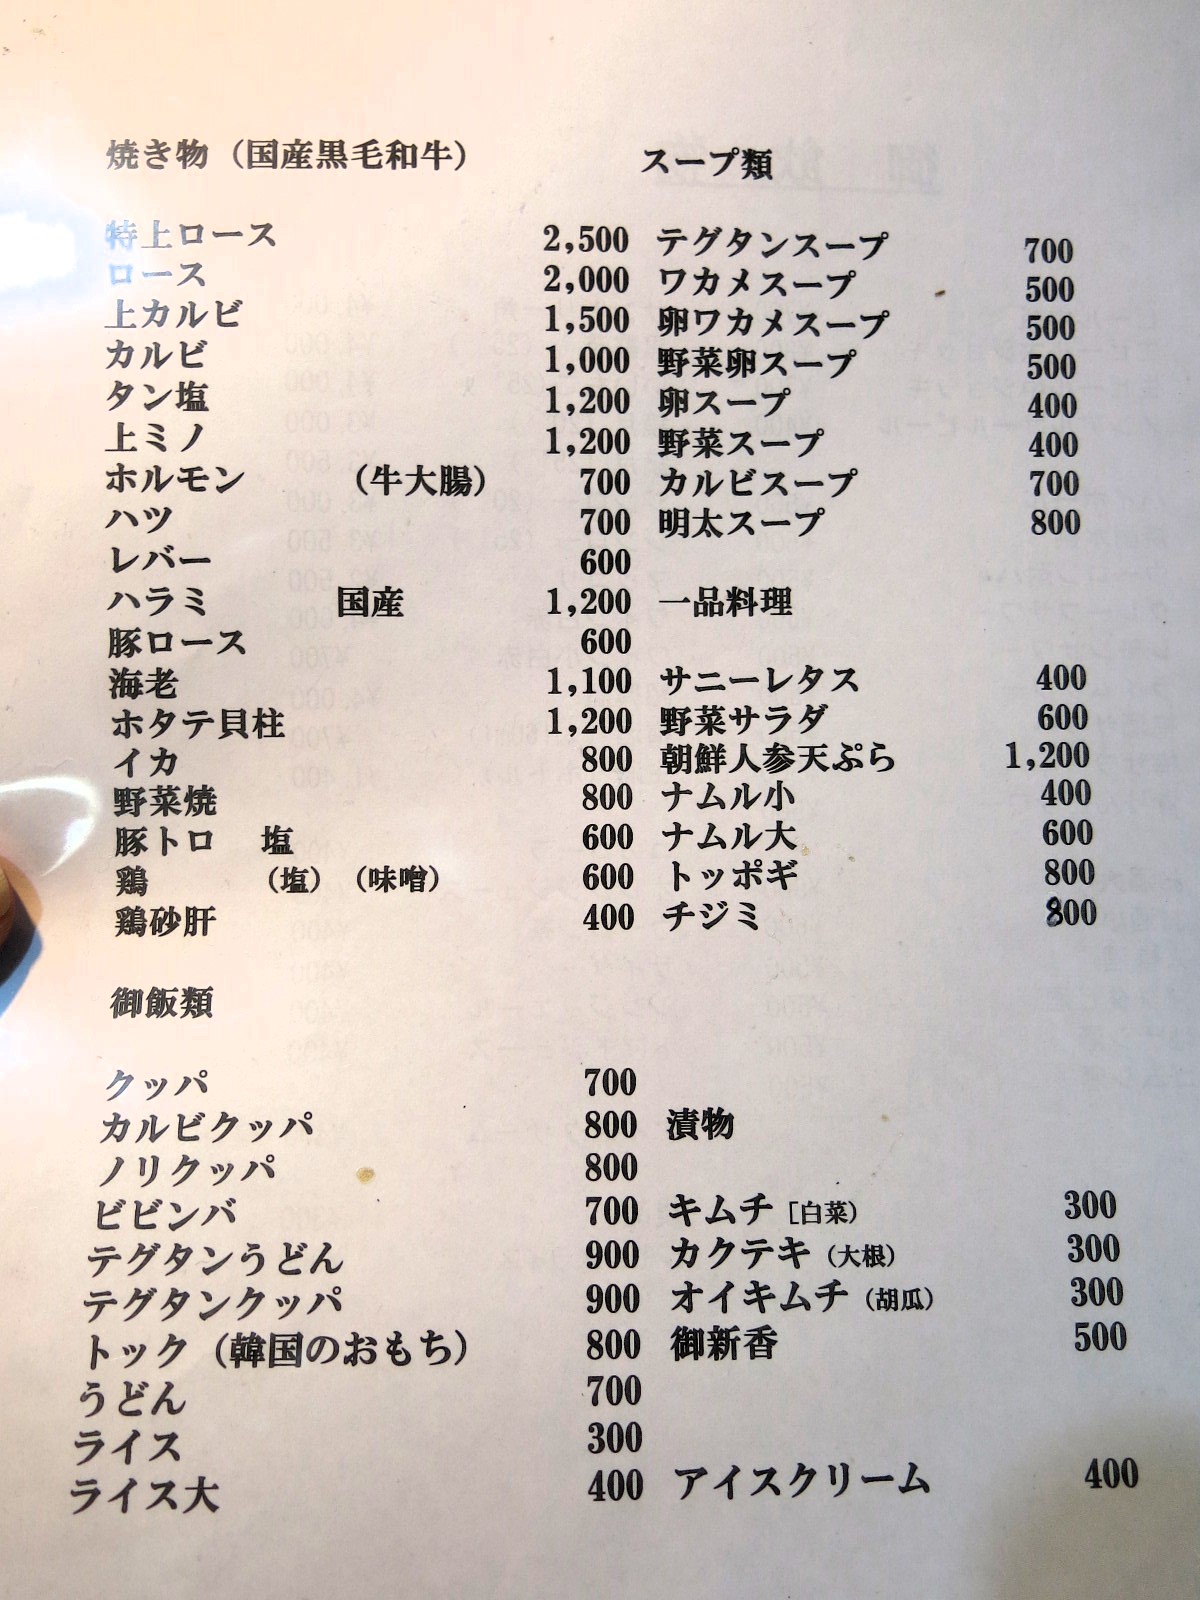 焼き物（国産黒毛和牛）
特上ロース 2,500
ロース 2,000
上カルビ 1,500
カルビ 1,000
タン塩 1,200
上ミノ 1,200
ホルモン （牛大腸） 700
ハツ 700
レバー 600
ハラミ 国産 1,200
豚ロース 600
海老 1,100
ホタテ貝柱 1,200
イカ 800
野菜焼 800
豚トロ 塩 600
鶏 （塩）（味噌） 600
鶏砂肝 400
御飯類
クッパ 700
カルビクッパ 800
ノリクッパ 800
ビビンバ 700
テグタンうどん 900
テグタンクッパ 900
トック（韓国のおもち） 800
うどん 700
ライス 300
ライス大 400
スープ類
テグタンスープ 700
ワカメスープ 500
卵ワカメスープ 500
野菜卵スープ 500
卵スープ 400
野菜スープ 400
カルビスープ 700
明太スープ 800
一品料理
サニーレタス 400
野菜サラダ 600
朝鮮人参天ぷら 1,200
ナムル小 400
ナムル大 600
トッポギ 800
チジミ 800
漬物
キムチ［白菜） 300
カクテキ（大根） 300
オイキムチ（胡瓜） 300
御新香 500
アイスクリーム 400